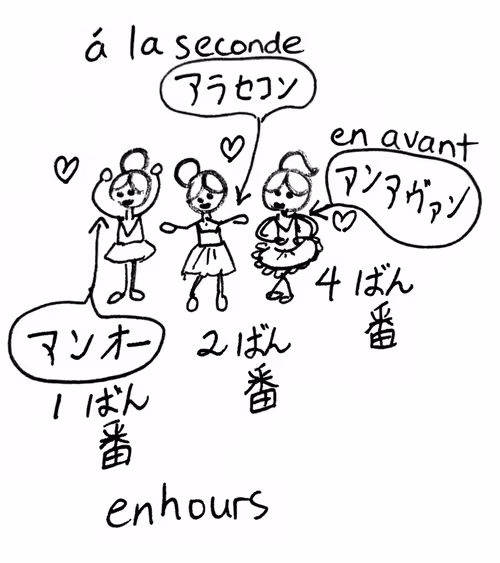 á la seconde
アラセコン
en avant
アンアヴァン
アンオー
1ばん
番
2ばん
番
4ばん
番
enhours